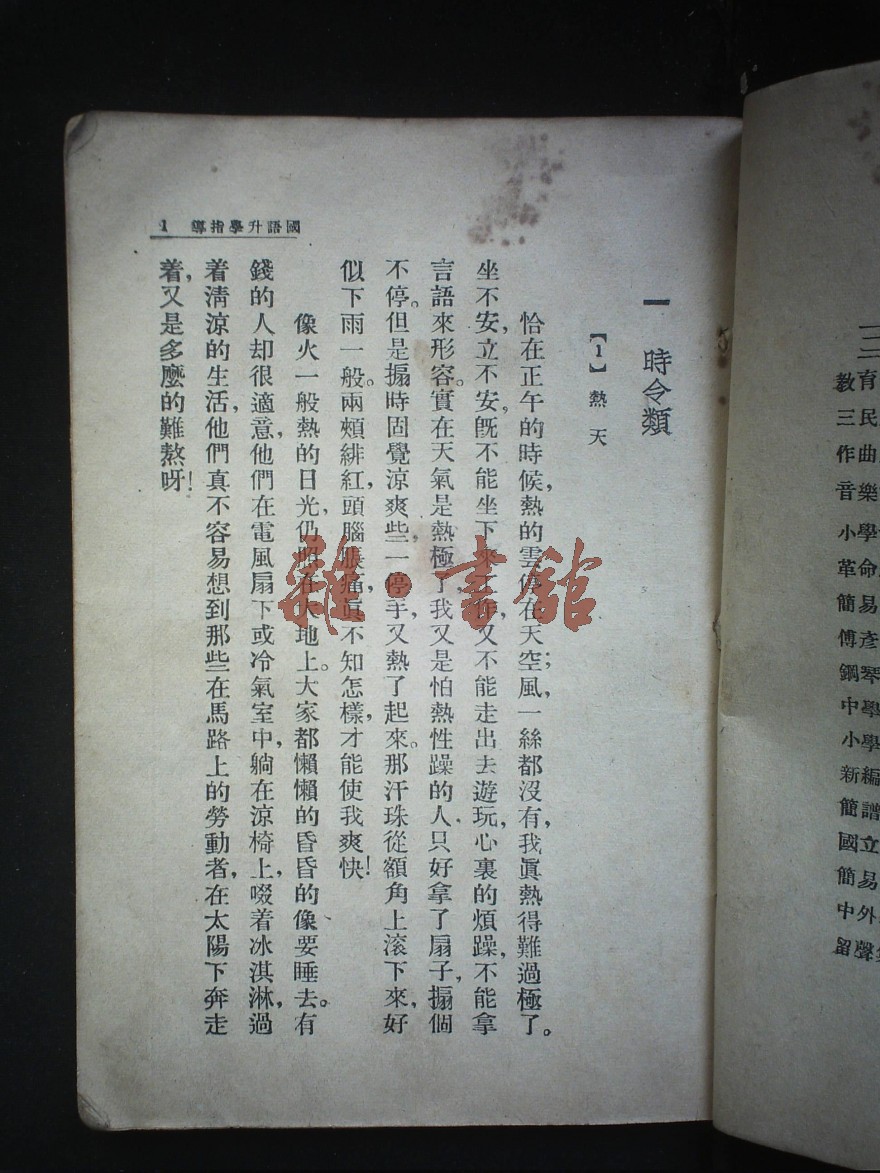 國語升學指導 1
一 時令類
【1】熱天
恰在正午的時候,熱的雲停在天空;風一絲都沒有,我眞熱得難過極了。
坐不安,立不安。旣不能坐下來工作,又不能走出去遊玩,心裏的煩躁,不能拿
言語來形容。實在天氣是熱極了,我又是怕熱性躁的人,只好拿了扇子,搧個
不停。但是搧時固覺涼爽些,一停手,又熱了起來。那汗珠從額角上滾下來,好
似下雨一般。兩頰緋紅,頭腦脹痛,眞不知怎樣,才能使我爽快!
像火一般熱的日光,仍照在大地上。大家都懶懶的昏昏的像要睡去。有
錢的人却很適意,他們在電風扇下或冷氣室中,躺在涼椅上,啜着冰淇淋,過
着清涼的生活,他們真不容易想到那些在馬路上的勞動者,在太陽下奔走
着,又是多麼的難熬呀!
雜·書館
三
育民
教三
作曲
音樂
小學
革命
簡易
傅彥
鋼琴
中學
小學
新編
簡譜
國立
簡易
中外
留聲